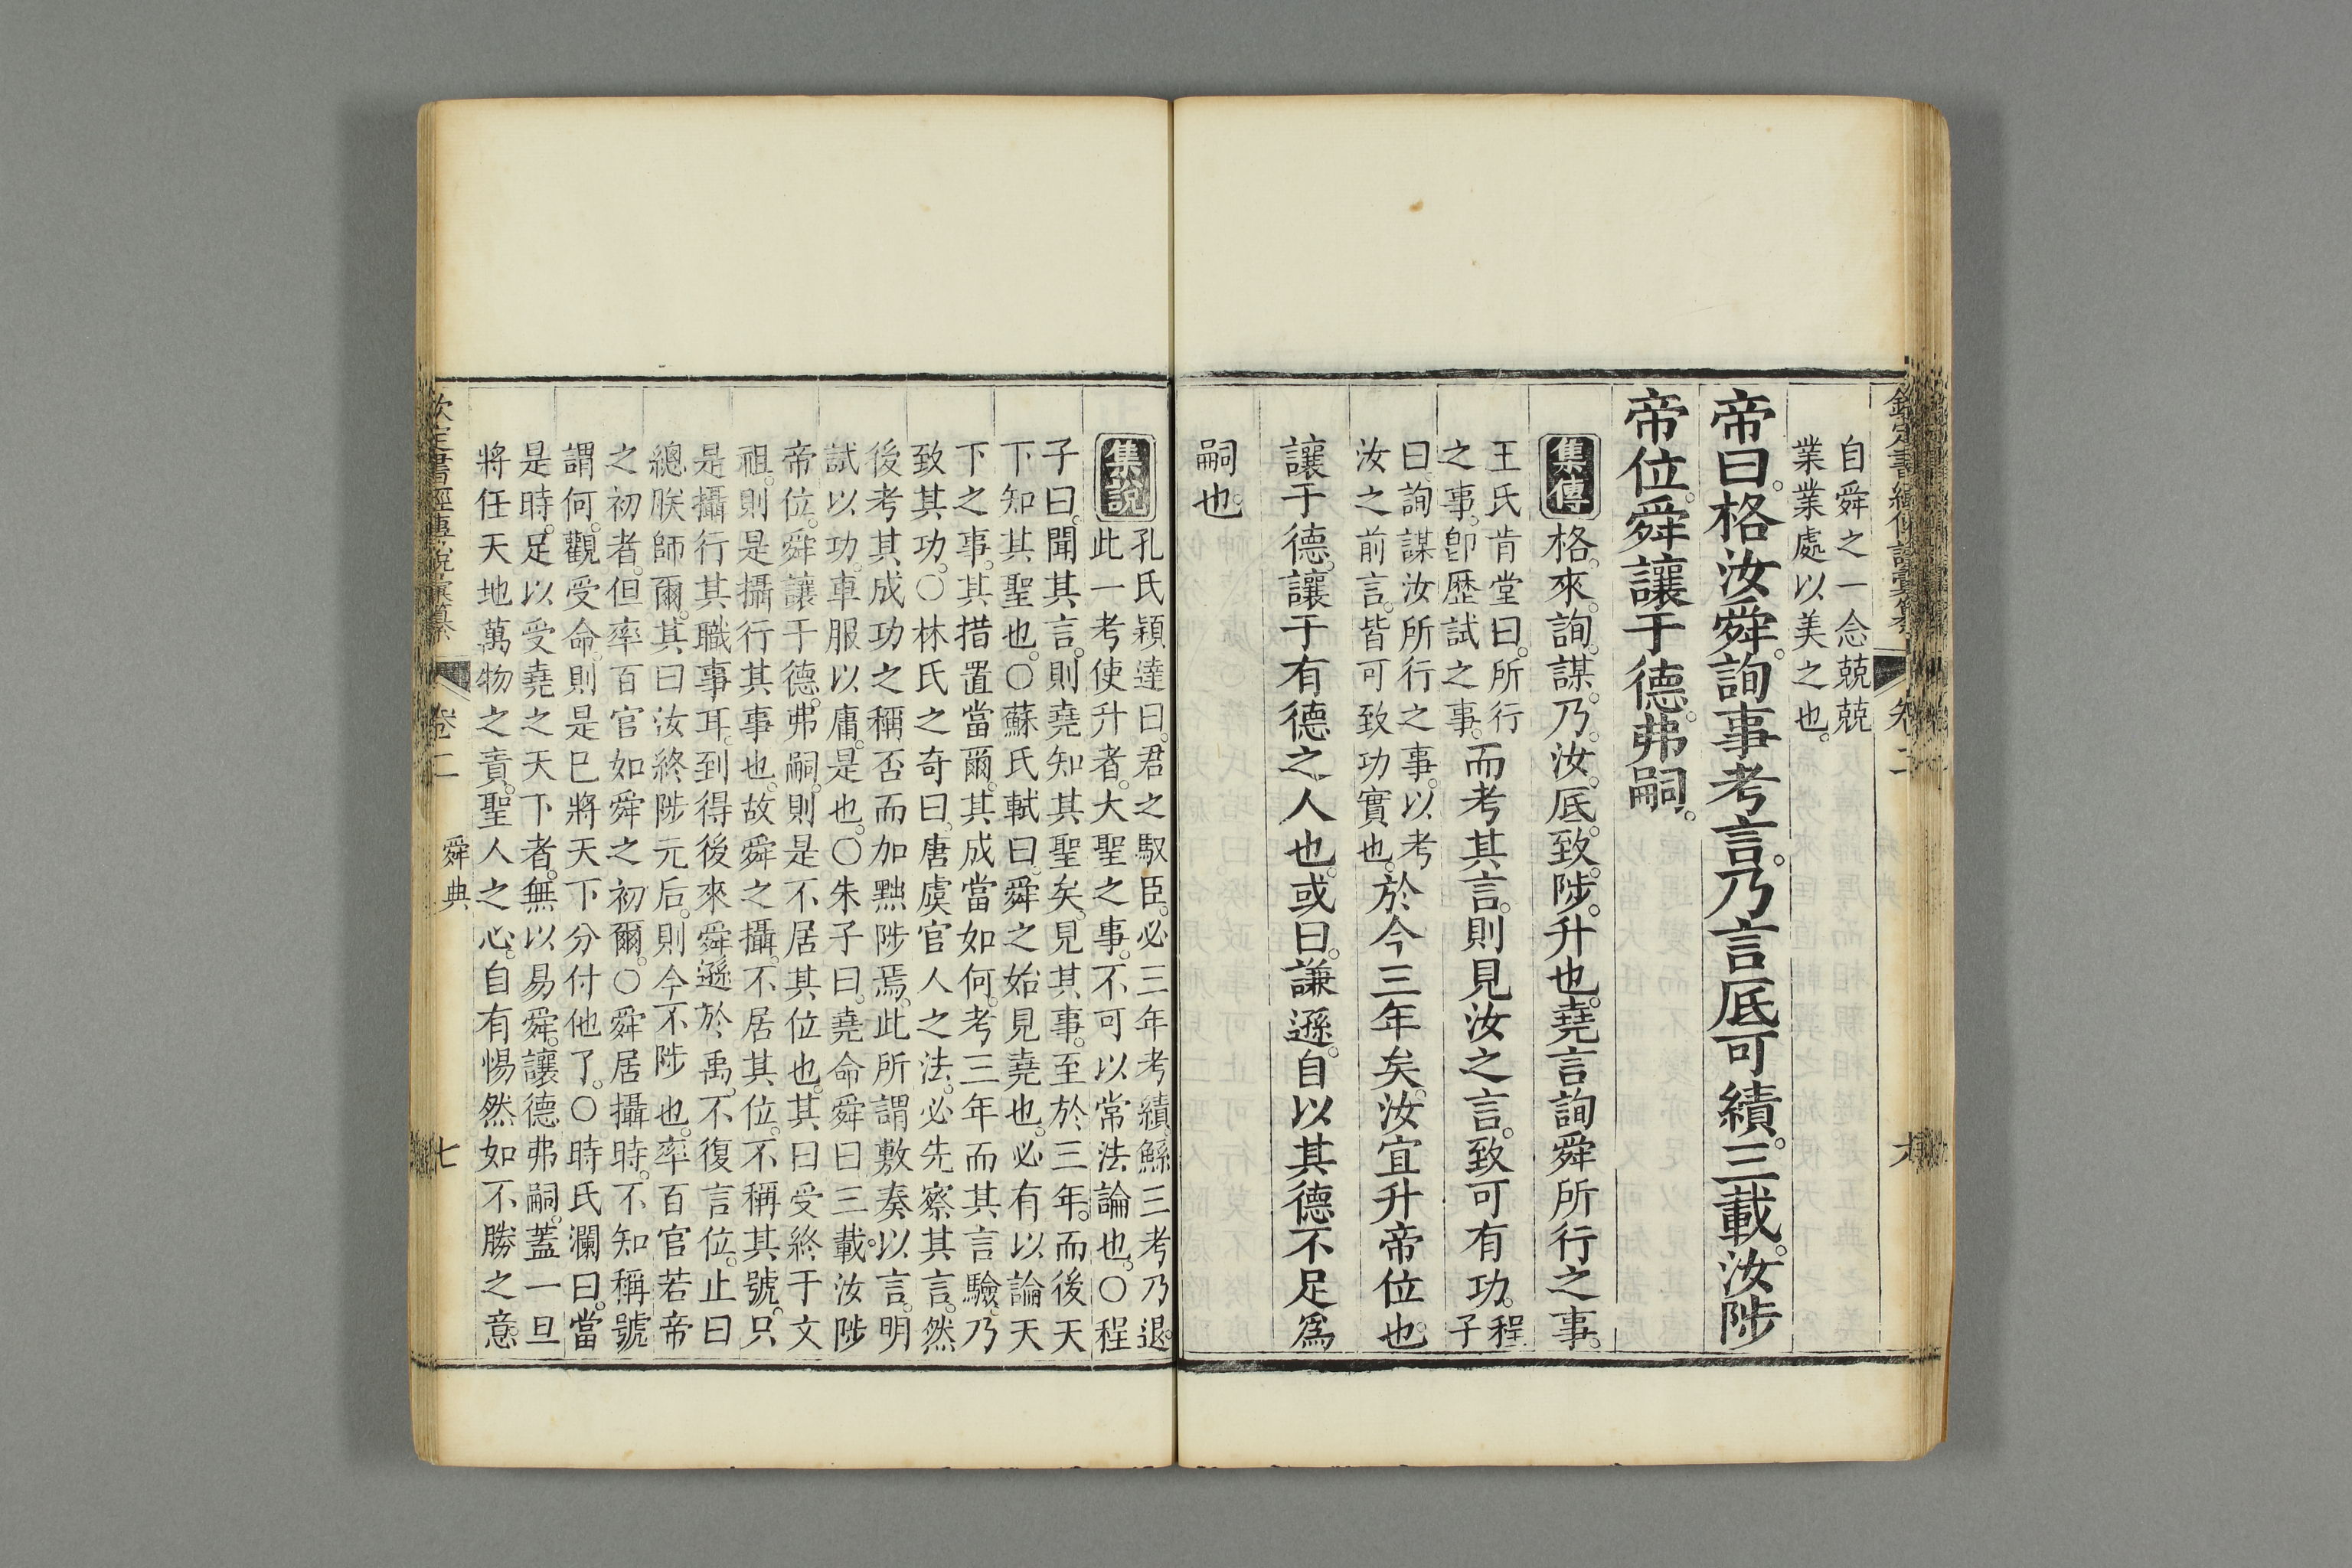 欽定書經傳說彙纂
卷二
六
自舜之一念兢兢
業業處以美之也。
帝曰。格汝舜。詢事考言。乃言厎可績。三載。汝陟
帝位。舜讓于德。弗嗣。
集傳
格。來。詢。謀。乃。汝。厎。致。陟。升也。堯言詢舜所行之事。
王氏肯堂曰。所行
之事。卽歷試之事。
而考其言。則見汝之言。致可有功。
程
子
曰。詢謀汝所行之事。以考
汝之前言。皆可致功實也。
於今三年矣。汝宜升帝位也。
讓于德。讓于有德之人也。或曰。謙遜。自以其德不足爲
嗣也。
集說
孔氏穎達曰。君之馭臣。必三年考績。鯀三考乃退。
此一考使升者。大聖之事。不可以常法論也。○程
子曰。聞其言。則堯知其聖矣。見其事。至於三年。而後天
下知其聖也。○蘇氏軾曰。舜之始見堯也。必有以論天
下之事。其措置當爾。其成當如何。考三年而其言驗。乃
致其功。○林氏之奇曰。唐虞官人之法。必先察其言。然
後考其成功之稱否而加黜陟焉。此所謂敷奏以言。明
試以功。車服以庸。是也。○朱子曰。堯命舜曰三載。汝陟
帝位。舜讓于德。弗嗣。則是不居其位也。其曰受終于文
祖。則是攝行其事也。故舜之攝。不居其位。不稱其號。只
是攝行其職事耳。到得後來舜遜於禹。不復言位。止曰
總朕師爾。其曰汝終陟元后。則今不陟也。率百官若帝
之初者。但率百官如舜之初爾。○舜居攝時。不知稱號
謂何。觀受命。則是已將天下分付他了。○時氏瀾曰。當
是時。足以受堯之天下者。無以易舜。讓德弗嗣。蓋一旦
將任天地萬物之責。聖人之心。自有惕然如不勝之意。
欽定書經傳說彙纂
卷二
舜典
七